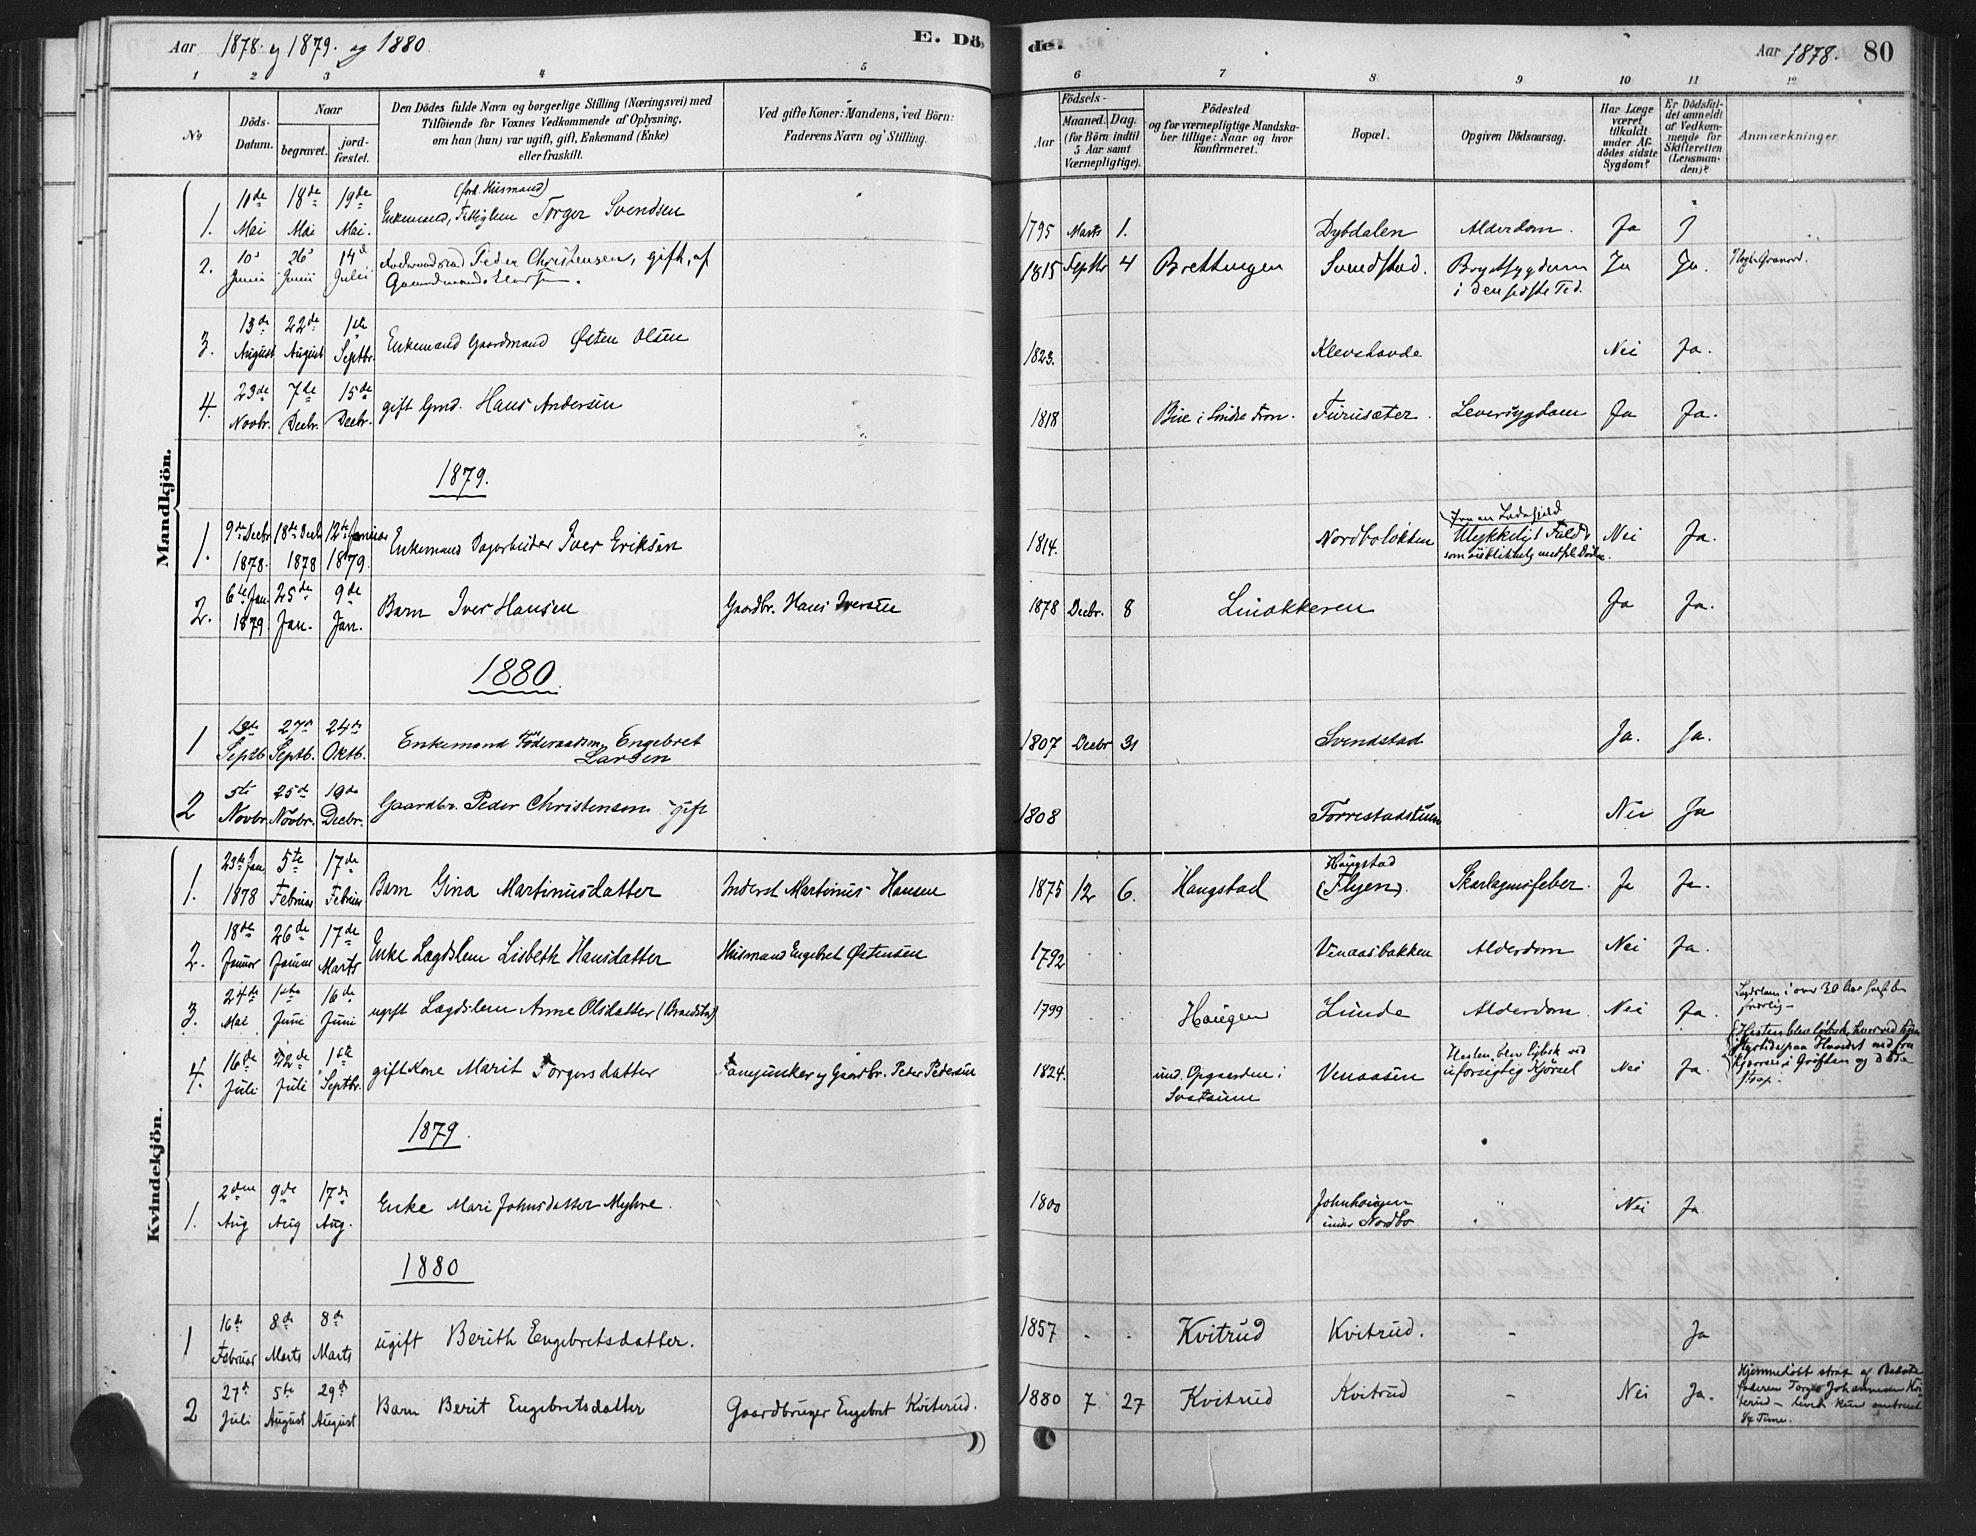 Aar 1878. og 1879. og 1880.
E. Dö,
de.
Aar 1878.
80
1 2 3 4 5 6 7 8 9 10 11 12
No
Döds-Datum.
Naar
begravet.
jord-fæstet.
Den Dödes fulde Navn og borgerlige Stilling (Næringsvei) med
Tilföiende for Voxnes Vedkommende af Oplysning,
om han (hun) var ugift, gift, Enkemand (Enke)
eller fraskilt.
Ved gifte Koner: Mandens, ved Börn:
Faderens Navn og Stilling.
Födsels-
Aar
Maaned.
Dag.
(for Börn indtil
5 Aar samt
Værnepligtige).
Födested
og for værnepligtige Mandska-
ber tillige: Naar og hvor
konfirmeret.
Bopæl.
Opgiven Dödsaarsag.
Har Læge
været
tilkaldt
under Af-
dödes sidste
Sygdom?
Er Dödsfal-
det anmeldt
af Vedkom-
mende for
Skifteretten
(Lensman-
den)?
Anmærkninger
Mandkjön.
1. 10de Mai 18de Mai 19de Mai. (ford. Husmand) Enkemand, Fattiglem Torger Svendsen 1795 Marts 1. Dybdalen Alderdom. Ja J
2. 10 Juni 26 Juni 14d Juli Peder Christensen, gift, af Gaardmands 1815 Septbr 4 Brettingen Svendstad. Brystsygdom i den sidste Tid. Ja Ja.
3. 13de August 22de August 1ste Septbr. Enkemand Gaardmand Østen Olsen 1823. Klevshovde Nei Ja.
4. 23de Novbr. 7de Decbr. 15de Decbr. gift Gmd. Hans Andersen 1818 Bue i Søndre Fron. Furusæter. Leversygdom Ja Ja.
1879.
1. 9de Decbr 1878. 18de Decb 1878 12te Januar 1879. Enkemand Dagarbeider Iver Eriksen 1814. Nordboløkken Ulykkeligt Fald som øieblikkelig medførte Døden. Nei Ja.
2. 6te Jan. 1879 25de Jan. 9de Jan. Barn Iver Hansen Gaardbr. Hans Iversen 1878 Decbr. 8 Linakkeren Ja Ja.
1880.
1 13de Septb. 27de Septb. 24de Oktb. Enkemand Føderaadsm. Engebret Larsen 1807 Decbr 31 Svendstad Ja. Ja.
2 5te Novbr. 25de Novbr. 19de Decbr. Gaardbr. Peder Christensen gift 1808 Forrestadstuen Nei Ja
Kvindekjön.
1. 23de Jan 1878 5te Februar 17de Februar Barn Gina Martinusdatter Inderst Martinus Hansen 1875 12 6. Haugstad Haugstad (Flyen). Skarlagensfeber. Ja Ja.
2. 18de Januar 26de Januar 17de Marts Enke Lægdslem Lisbeth Hansdatter Husmand Engebret Østensen 1792 Venaasbakken Alderdom Nei Ja.
3. 24de Mai 1ste Juni 16de Juni ugift Lægdslem Anne Olsdatter 1799 Haugen Lunde Alderdom. Nei Ja. Lægdslem i over 30 Aar
4. 16de Juli 22de Juli 1ste Septbr. gift Kone Marit Torgersdatter Fanejunker og Gaardbr. Peter Pedersen 1824. und. Opgaarden i Svatsum Venaasen Hesten blev løbsk ved uforsigtig Kjørsel Nei Ja. Hesten blev løbsk, hvorved hun styrtede paa Hovedet ned fra Kjærren i Grøften og døde strax.
1879.
1. 2den Aug 9de Aug 17de Aug. Enke Mari Johnsdatter Myhre. 1800 Johnhaugen under Nordbo " Nei Ja
1880
1 16de Februar 8de Marts 8de Marts ugift Berith Engebretsdatter. 1857 Kvitrud Kvitrud. - Ja
2 27d Juli 5te August 29d August Barn Berit Engebretsdatter Gaardbruger Engebret Kviterud. 1880 7. 27 Kvitrud Kvitrud - Nei Ja. Hjemmedøbt strax af Bedstefaderen Torger Johannesen Kviterud - levede kun omtrent 1/4 Time.